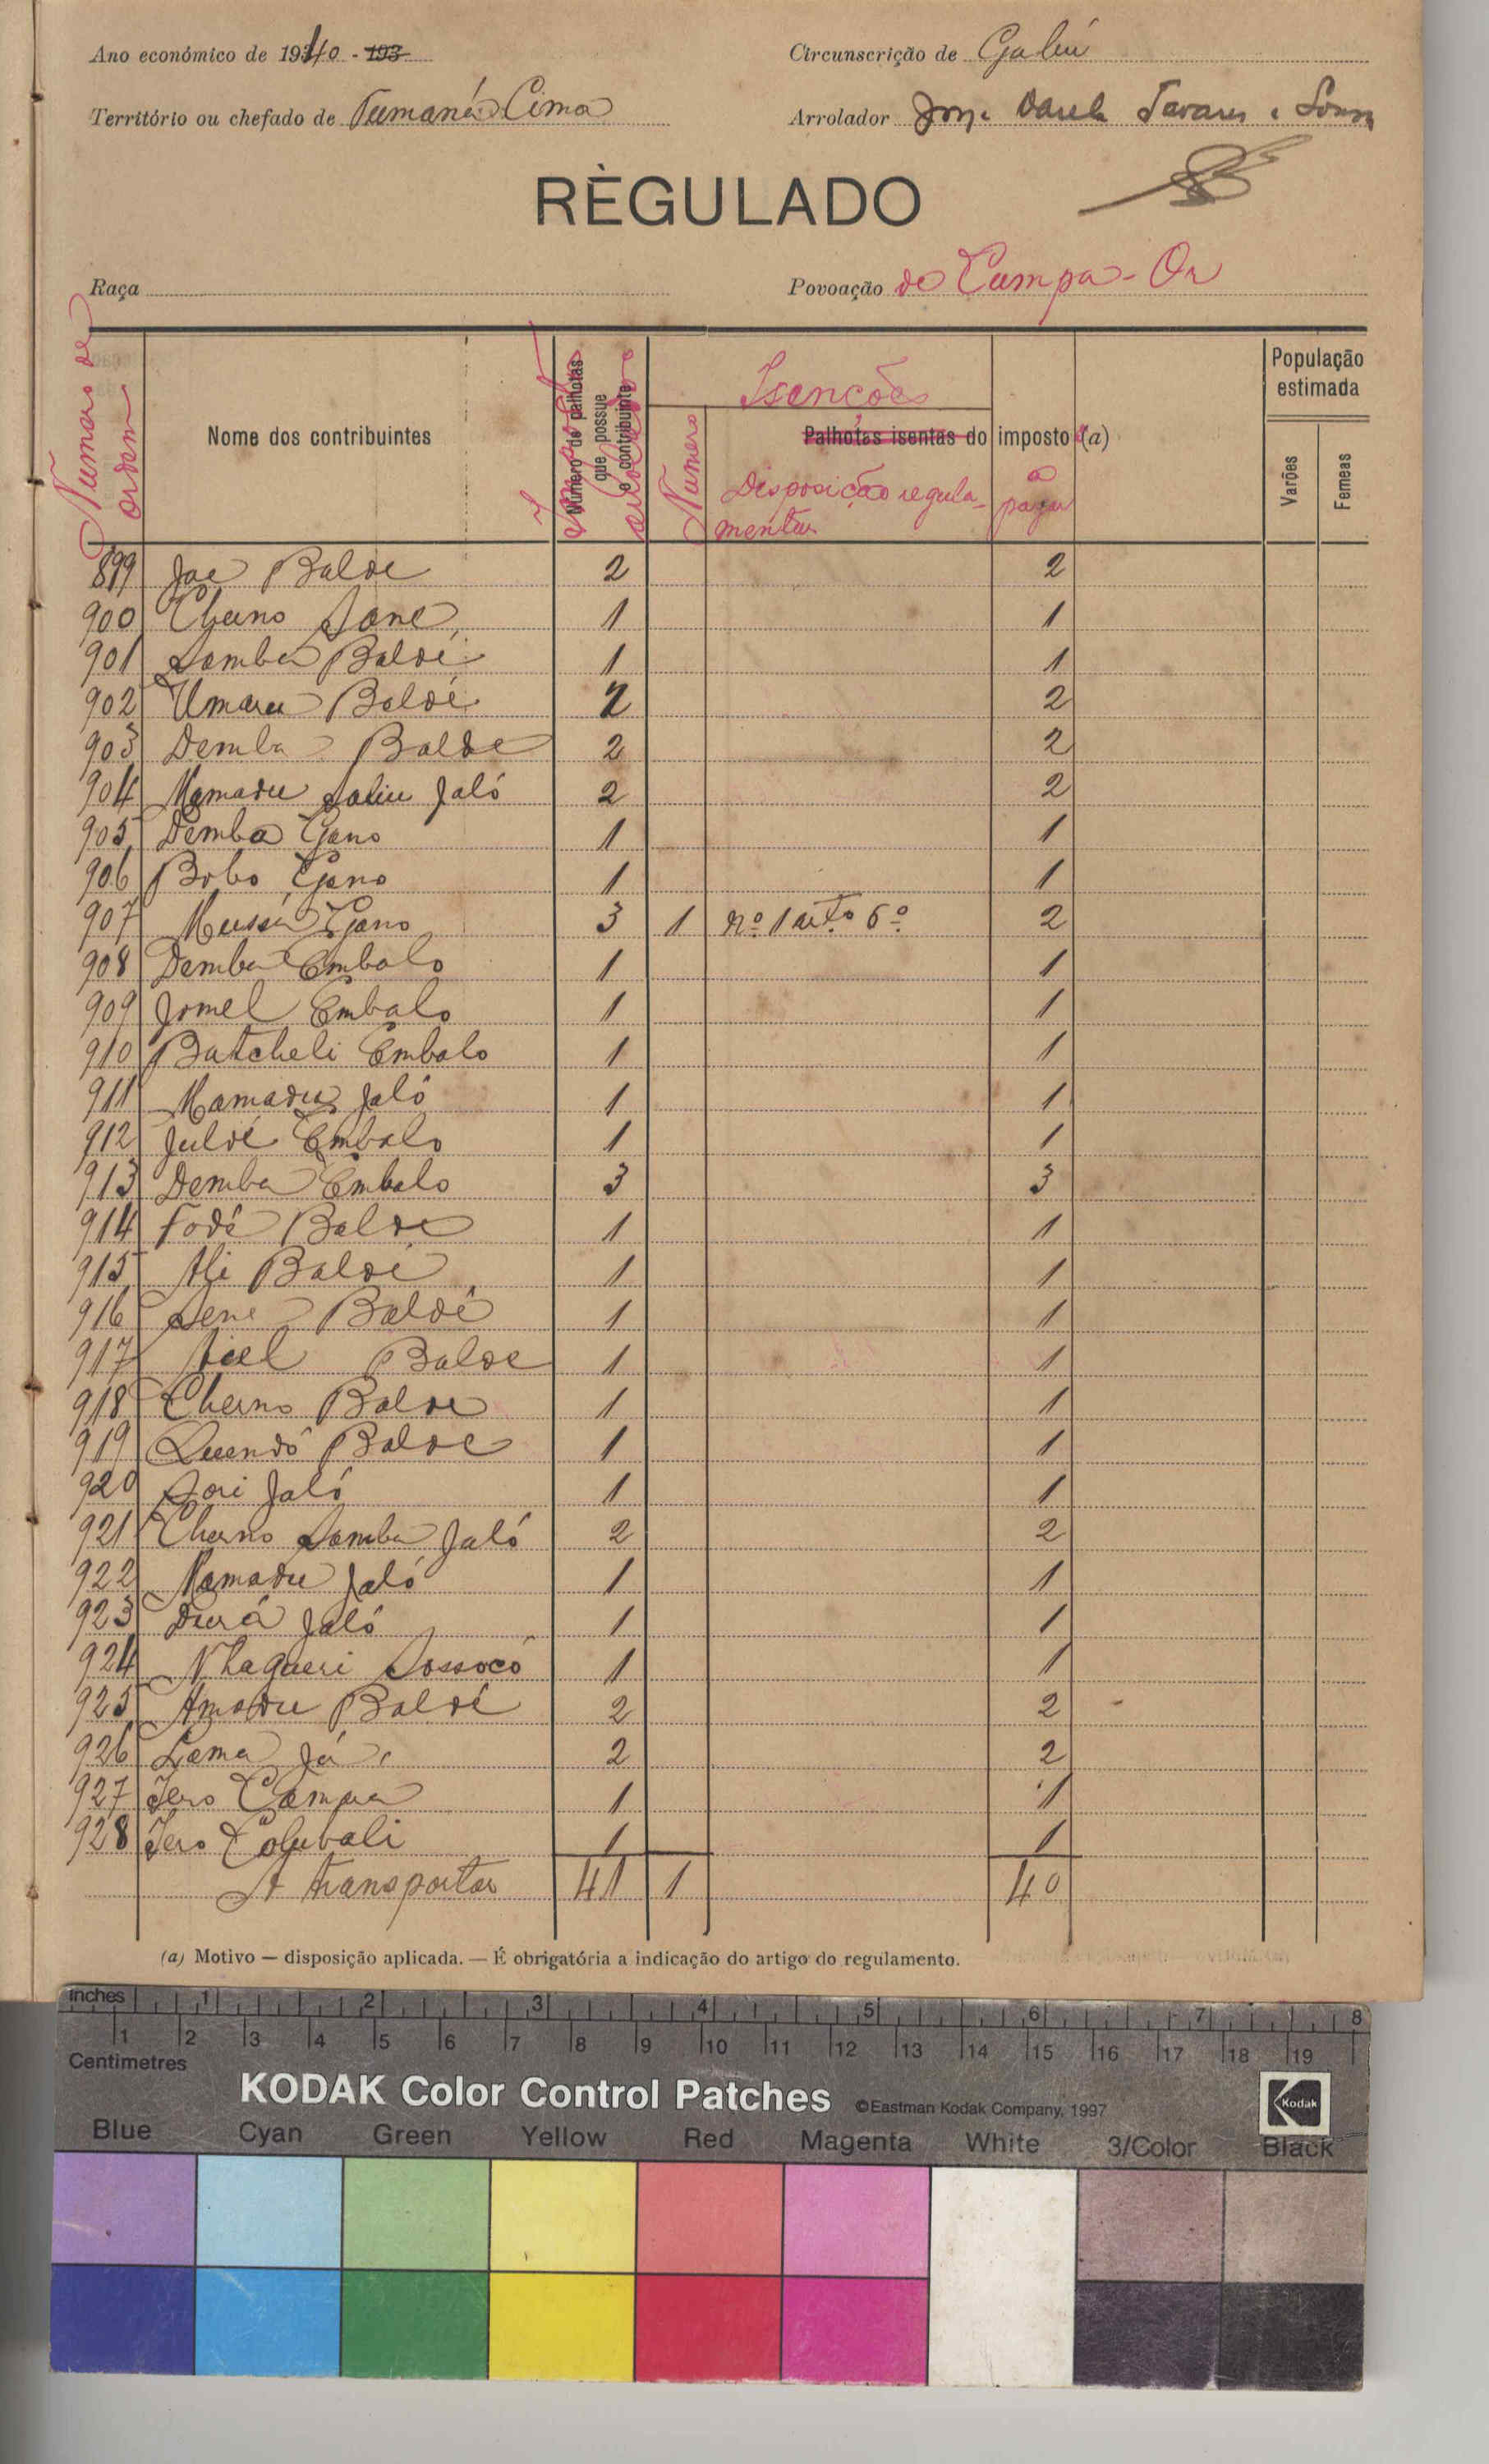 Ano económico de 1940 - 193
Circunscrição de Gabú
Território ou chefado de Tumaná Cima
Arrolador Jorge Varela Tavares e Sousa
RÈGULADO
Raça
Povoação de Cumpa-Or
Numero de ordem
Nome dos contribuintes
Número de palhotas que possue o contribuinte
Isenções
Numero
Palhotas isentas do imposto (a)
Disposição regulamentar
a pagar
População estimada
Varões
Femeas
899 Jae Balde 2 2
900 Cherno Sane 1 1
901 Samba Baldé 1 1
902 Umaru Baldé 2 2
903 Demba Balde 2 2
904 Mamadu Saliu Jaló 2 2
905 Demba Gano 1 1
906 Bobo Gano 1 1
907 Mussá Gano 3 1 nº 1 artº 6º 2
908 Demba Embalo 1 1
909 Jomel Embalo 1 1
910 Butcheli Embalo 1 1
911 Mamadu Jaló 1 1
912 Juldé Embalo 1 1
913 Demba Embalo 3 3
914 Fodé Balde 1 1
915 Ali Baldé 1 1
916 Sene Baldé 1 1
917 Balde 1 1
918 Cherno Balde 1 1
919 Quendó Balde 1 1
920 Sori Jaló 1 1
921 Cherno Samba Jaló 2 2
922 Mamadu Jaló 1 1
923 Jaló 1 1
924 Nhagueri Sossocó 1 1
925 Amadu Baldé 2 2
926 Lama Já 2 2
927 Jero Campa 1 1
928 Jero Colubali 1 1
A transportar 41 1 40
(a) Motivo — disposição aplicada. — É obrigatória a indicação do artigo do regulamento.
inches 1 2 3 4 5 6 7 8
1 2 3 4 5 6 7 8 9 10 11 12 13 14 15 16 17 18 19
Centimetres
KODAK Color Control Patches ©Eastman Kodak Company, 1997 Kodak
Blue Cyan Green Yellow Red Magenta White 3/Color Black